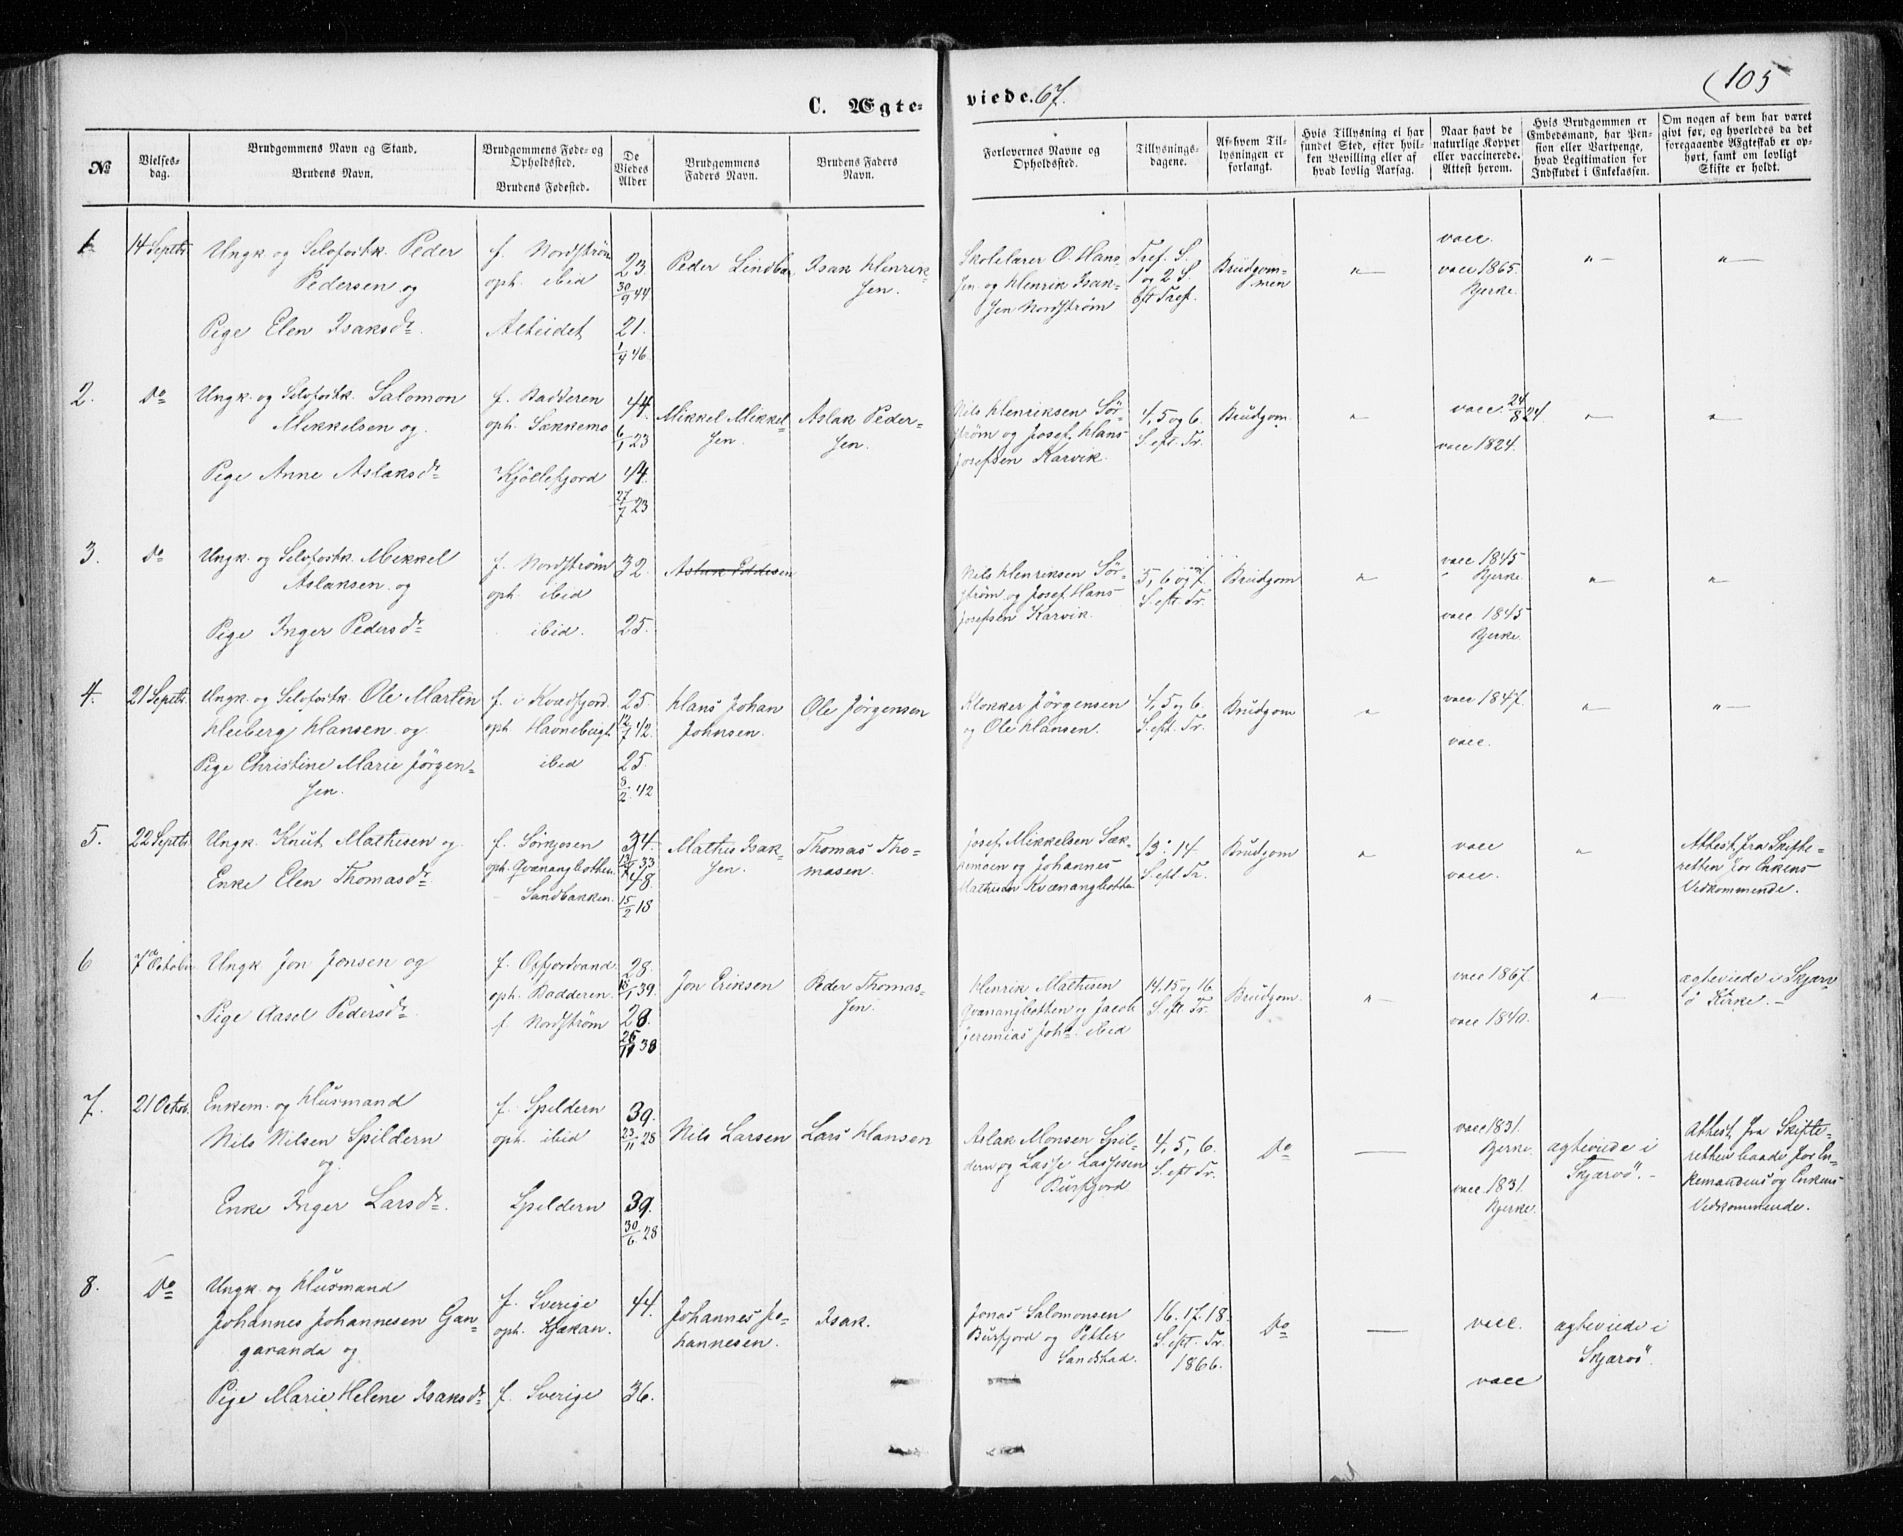 (105
C. Ægte-
viede. 67.
№
Vielses-
dag.
Brudgommens Navn og Stand.
Brudens Navn.
Brudgommens Føde- og
Opholdssted.
Brudens Fødested.
De
Viedes
Alder
Brudgommens
Faders Navn.
Brudens Faders
Navn.
Forlovernes Navne og
Opholdssted.
Tillysnings-
dagene.
Af hvem Til-
lysningen er
forlangt.
Hvis Tillysning ei har
fundet Sted, efter hvil-
ken Bevilling eller af
hvad lovlig Aarsag.
Naar havt de
naturlige Kopper
eller vaccinerede.
Attest herom.
Hvis Brudgommen er
Embedsmand, har Pen-
sion eller Vartpenge,
hvad Legitimation for
Indskudet i Enkekassen.
Om nogen af dem har været
givt før, og hvorledes da det
foregaaende Ægteskab er op-
hørt, samt om lovligt
Skifte er holdt.
1
14 Septbr
Ungk. og Selvfostk. Peder
Pedersen og
Pige Elen Isaksdr.
f. Nordstrøm
oph. ibid
Alteidet
23
30/9 44
21.
1/4 46
Peder Lindbe
Isak Henrik-
sen.
Skolelærer O. Hans-
sen og Henrik Isak-
sen Nordstrøm
Tref. S.
1 og 2 S
eft Tref.
Brudgom-
men
"
vacc.
vacc 1865.
Bjerke.
"
"
2.
Do
Ungk. og Selvfostk. Salomon
Mikkelsen og
Pige Anne Aslaksdr
f. Badderen
oph. Sækkemo
Kjøllefjord
44.
6/1 23
44.
27/7 23
Mikkel Mikkel-
sen.
Aslak Peder-
sen.
Nils Henriksen Sør-
strøm og Josef Hans
Josefsen Karvik.
4, 5 og 6.
S. eft. Tr.
Brudgom.
"
vacc. 24/8 24.
vacc 1824.
"
"
3.
Do
Ungk. og Selvfostk. Mikkel
Aslaksen og
Pige Inger Pedersdr
f. Nordstrøm
oph. ibid
ibid.
32.
25.
Nils Henriksen Sør-
strøm og Josef Hans
Josefsen Karvik.
5, 6 og 7.
S. eft. Tr.
Brudgom
"
vacc 1845
Bjerke.
vacc. 1845
Bjerke.
"
"
4.
21 Septbr.
Ungk. og Selvfostk. Ole Marten
Heiberg Hansen og
Pige Christine Marie Jørgen-
sen.
f. i Kvædfjord.
oph. Havnebugt.
ibid
25.
12/7 42.
25.
8/2 42
Hans Johan
Johnsen.
Ole Jørgensen
Klokker Jørgensen
og Ole Hansen.
4, 5 og 6.
S. eft. Tr.
Brudgom
"
vacc 1847.
vacc.
"
"
5.
22 Septbr.
Ungk. Knut Mathisen og
Enke Elen Thomasdr
f. Sørkjosen
oph. Qvænangbotten.
Sandbakken.
34.
33
48.
15/2 18
Mathis Isak-
sen.
Thomas Tho-
masen.
Josef Mikkelsen Sæk-
kemoen og Johannes
Mathisen Kvænangbotten
13. 14.
S. eft Tr.
Brudgom
"
vacc
vacc.
"
Attest fra Skifte-
retten for Enkens
Vedkommende.
6
7de October
Ungk Jon Jonsen og
Pige Aasel Pedersdr.
f. Oxfjordvand
oph. Badderen.
f. Nordstrøm
28.
18/1 39.
28.
26/11 38
Jon Eriksen
Peder Thomas-
sen.
Henrik Mathisen
Qvænangbotten og Jacob
Jeremias Joh. ibid
14. 15 og 16.
S. eft. Tr.
Brudgom.
"
vacc 1867.
vacc 1840.
"
ægteviede i Skjærv
ø Kirke. -
7.
21 Octob.
Enkem. og Husmand
Nils Nilsen Spildern
og
Enke Inger Larsdr.
f. Spildern
oph. ibid
Spildern
39.
23/11 28
39.
30/6 28
Nils Larsen
Lars Hansen
Aslak Monsen Spil-
dern og Lasse Lassesen
Burfjord
4, 5, 6.
S. eft Tr.
Do
—
vacc 1831.
Bjerke.
vacc 1831.
Bjerke.
ægteviede i
Skjærvö. -
Attest fra Skifte-
retten baade for En-
kemandens og Enkens
Vedkommende.
8.
Do
Ungk. og Husmand
Johannes Johannesen Gan-
garanda og
Pige Marie Helene Isaksdr.
f. Sverige
oph. Kjækan.
f. Sverige
44.
36.
Johannes Jo-
hannesen.
Isak.
Jonas Salomonsen
Burfjord og Petter
Sandstad.
16. 17. 18.
S. eft. Tr.
1866.
Do
—
vacc.
vacc
ægteviede i
Skjærvö.